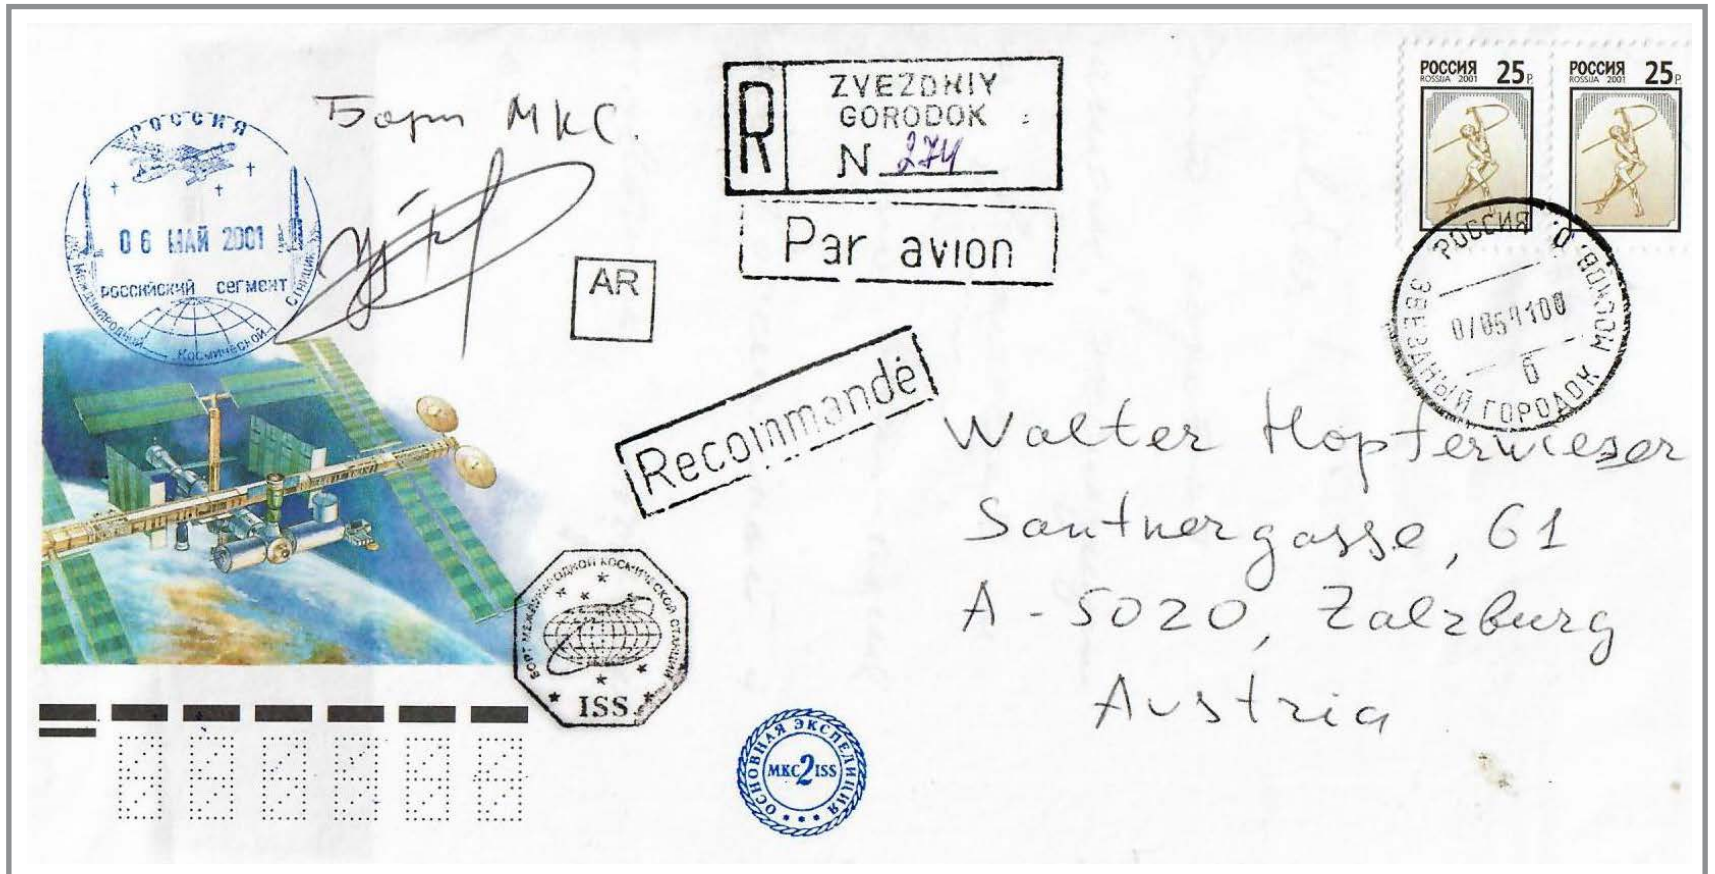 РОССИЯ
06 МАЙ 2001
РОССИЙСКИЙ СЕГМЕНТ
МЕЖДУНАРОДНОЙ КОСМИЧЕСКОЙ СТАНЦИИ
Борт МКС.
R
ZVEZDNIY
GORODOK
N 274
Par avion
AR
Recommandé
РОССИЯ 25 Р.
ROSSIJA 2001
РОССИЯ 25 Р.
ROSSIJA 2001
РОССИЯ МОСКОВ. О.
ЗВЕЗДНЫЙ ГОРОДОК
б
Walter Hopferwieser
Santnergasse, 61
A - 5020, Zalzburg
Austria
БОРТ МЕЖДУНАРОДНОЙ КОСМИЧЕСКОЙ СТАНЦИИ
ISS
ОСНОВНАЯ ЭКСПЕДИЦИЯ
МКС 2 ISS